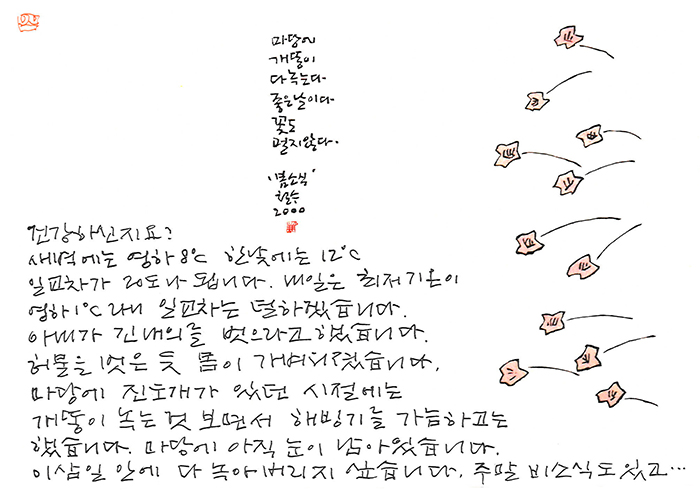 마당에
개똥이
다 녹는다
좋은 날이다
꽃도
멀지 않다.
'봄소식'
철수
2000
건강하신지요?
새벽에는 영하 8℃ 한낮에는 12℃
일교차가 20도나 됩니다. 내일은 최저기온이
영하 1℃ 라니 일교차는 덜하겠습니다.
아내가 긴 내의를 벗으라고 했습니다.
허물을 벗은 듯 몸이 가벼워졌습니다.
마당에 진돗개가 있던 시절에는
개똥이 녹는 것 보면서 해빙기를 가늠하고는
했습니다. 마당에 아직 눈이 남아있습니다.
이삼일 안에 다 녹아버리지 싶습니다. 주말 비소식도 있고…